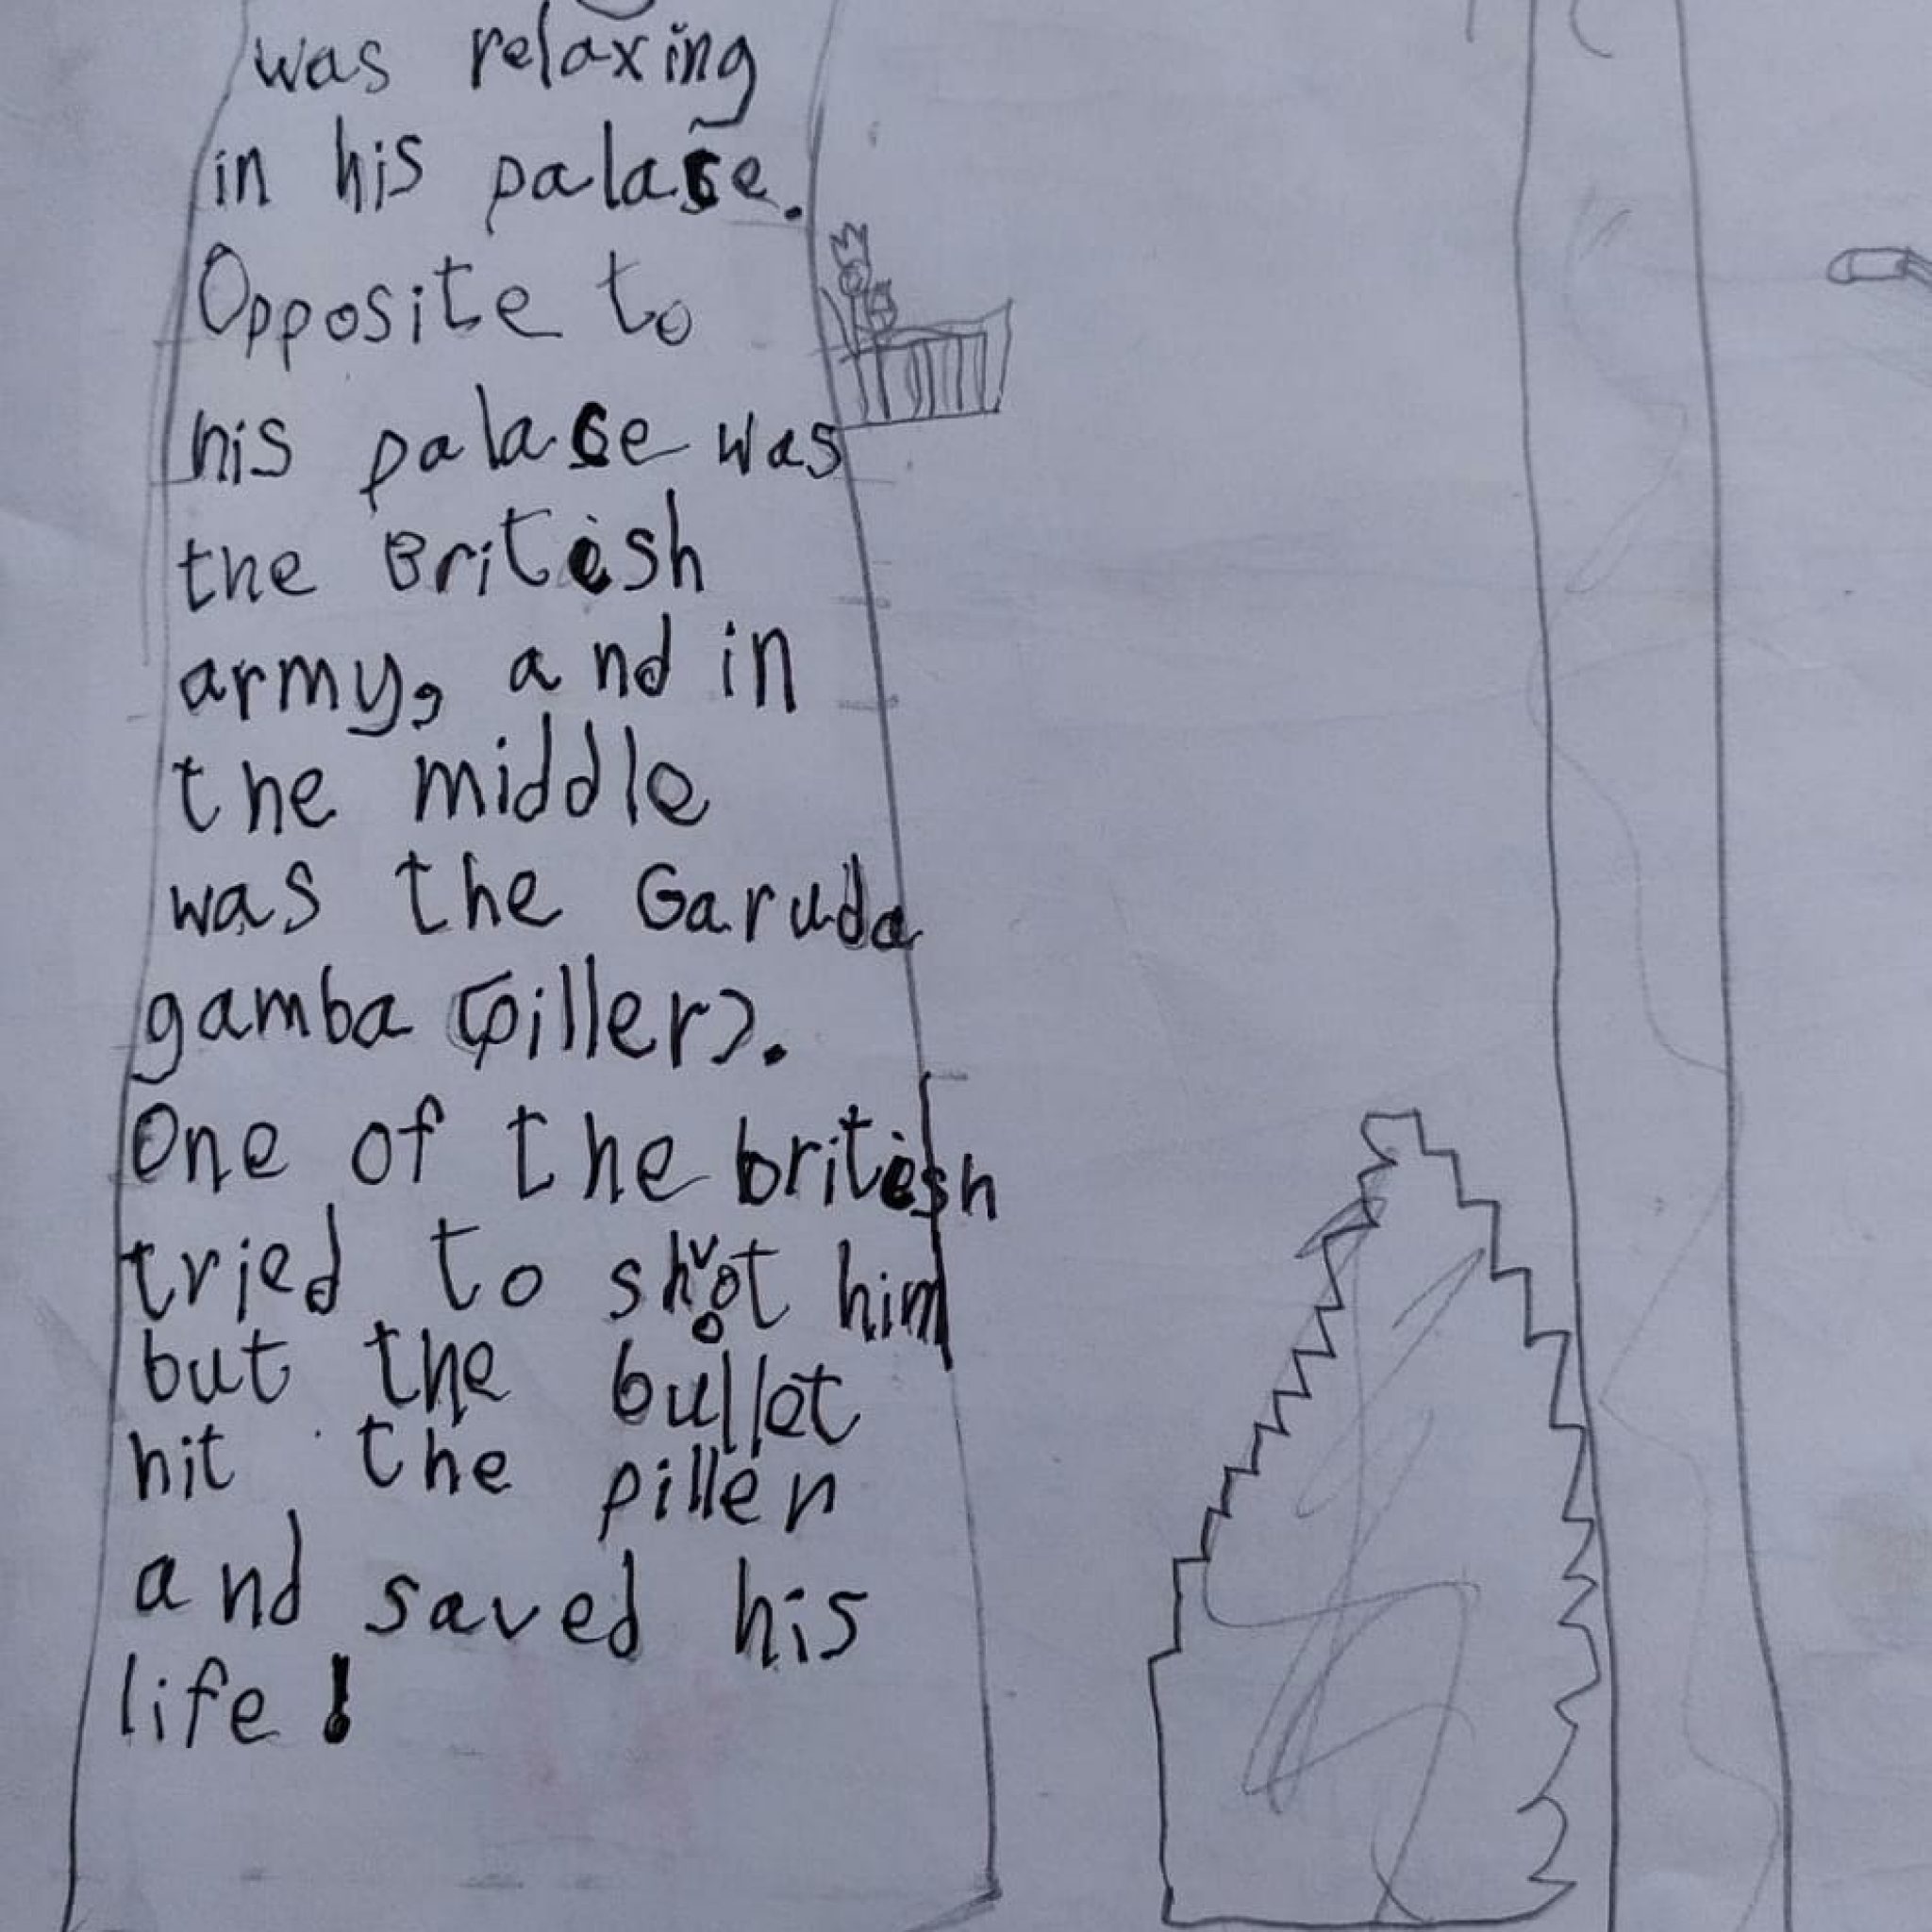 was relaxing
in his palace.
Opposite to
his palace was
the British
army, and in
the middle
was the Garuda
gamba (piller).
One of the british
tried to shoot him
but the bullet
hit the piller
and saved his
life!